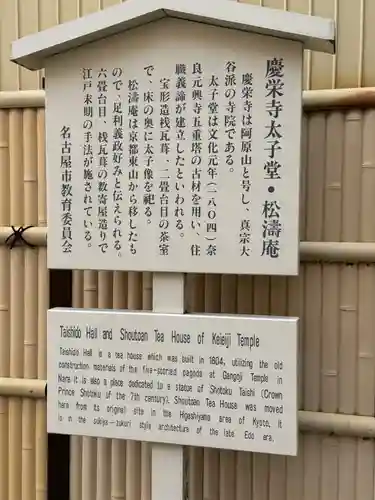 慶栄寺太子堂・松濤庵
慶栄寺は阿原山と号し、真宗大
谷派の寺院である。
太子堂は文化元年(一八〇四)奈
良元興寺五重塔の古材を用い、住
職義諦が建立したといわれる。
宝形造桟瓦葺、二畳台目の茶室
で、床の奥に太子像を祀る。
松濤庵は京都東山から移したも
ので、足利義政好みと伝えられる。
六畳台目、桟瓦葺の数寄屋造りで
江戸末期の手法が施されている。
名古屋市教育委員会
Taishido Hall and Shoutoan Tea House of Keieiji Temple
Taishido Hall is a tea house which was built in 1804, utilizing the old
construction materials of the five-storied pagoda at Gangoji Temple in
Nara. It is also a place dedicated to a statue of Shotoku Taishi (Crown
Prince Shotoku of the 7th century). Shoutoan Tea House was moved
here from its original site in the Higashiyama area of Kyoto. It
is in the sukiya-zukuri style architecture of the late Edo era.